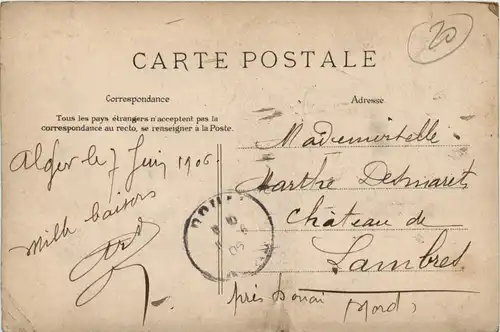 20
CARTE POSTALE
Correspondance
Adresse
Tous les pays étrangers n'acceptent pas la
correspondance au recto, se renseigner à la Poste.
Alger le 7 Juin 1906.
Mille baisers
Mademoiselle
Marthe Desmarets
Château de
Lambres
près Douai (Nord)
DOUAI